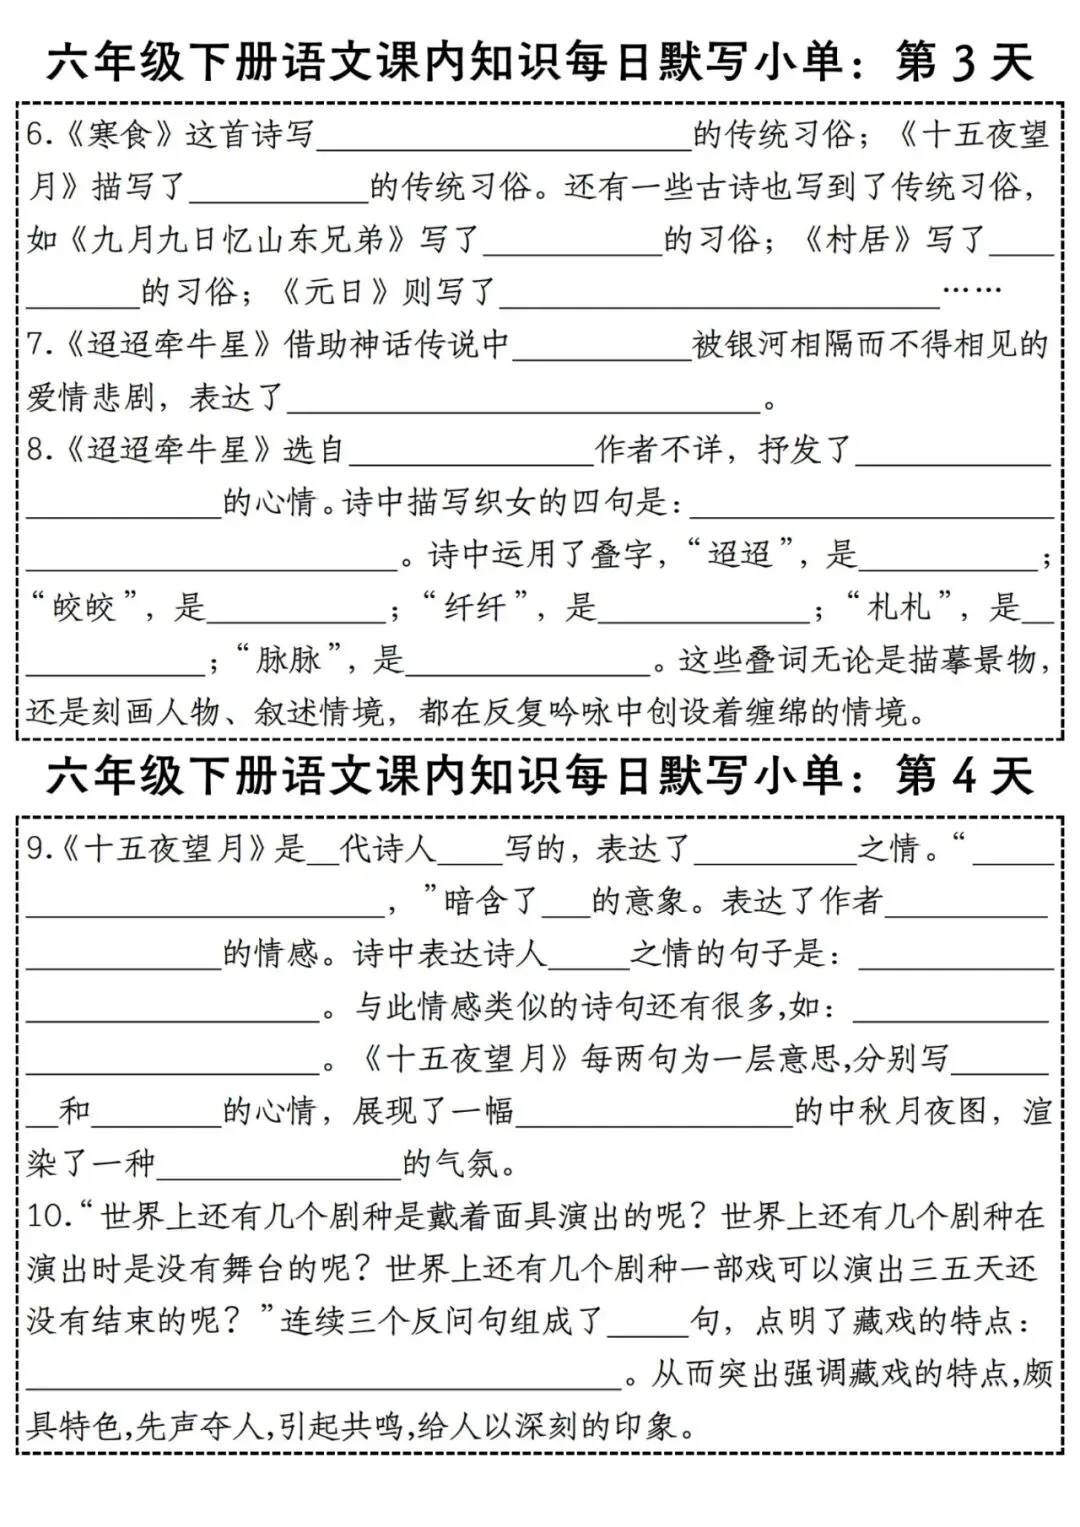 六年级下册语文课内知识每日默写小单：第 3 天
6.《寒食》这首诗写_______________________的传统习俗；《十五夜望
月》描写了___________的传统习俗。还有一些古诗也写到了传统习俗，
如《九月九日忆山东兄弟》写了___________的习俗；《村居》写了____
_______的习俗；《元日》则写了___________________________……
7.《迢迢牵牛星》借助神话传说中___________被银河相隔而不得相见的
爱情悲剧，表达了_____________________________。
8.《迢迢牵牛星》选自_______________作者不详，抒发了____________
____________的心情。诗中描写织女的四句是：______________________
_______________________。诗中运用了叠字，“迢迢”，是___________；
“皎皎”，是___________；“纤纤”，是_____________；“札札”，是__
___________；“脉脉”，是_______________。这些叠词无论是描摹景物，
还是刻画人物、叙述情境，都在反复吟咏中创设着缠绵的情境。
六年级下册语文课内知识每日默写小单：第 4 天
9.《十五夜望月》是__代诗人____写的，表达了__________之情。“_____
______________________，”暗含了___的意象。表达了作者__________
____________的情感。诗中表达诗人_____之情的句子是：____________
__________________。与此情感类似的诗句还有很多,如：____________
__________________。《十五夜望月》每两句为一层意思,分别写______
__和________的心情，展现了一幅_________________的中秋月夜图，渲
染了一种_______________的气氛。
10.“世界上还有几个剧种是戴着面具演出的呢？世界上还有几个剧种在
演出时是没有舞台的呢？世界上还有几个剧种一部戏可以演出三五天还
没有结束的呢？”连续三个反问句组成了_____句，点明了藏戏的特点：
____________________________________。从而突出强调藏戏的特点,颇
具特色,先声夺人,引起共鸣,给人以深刻的印象。